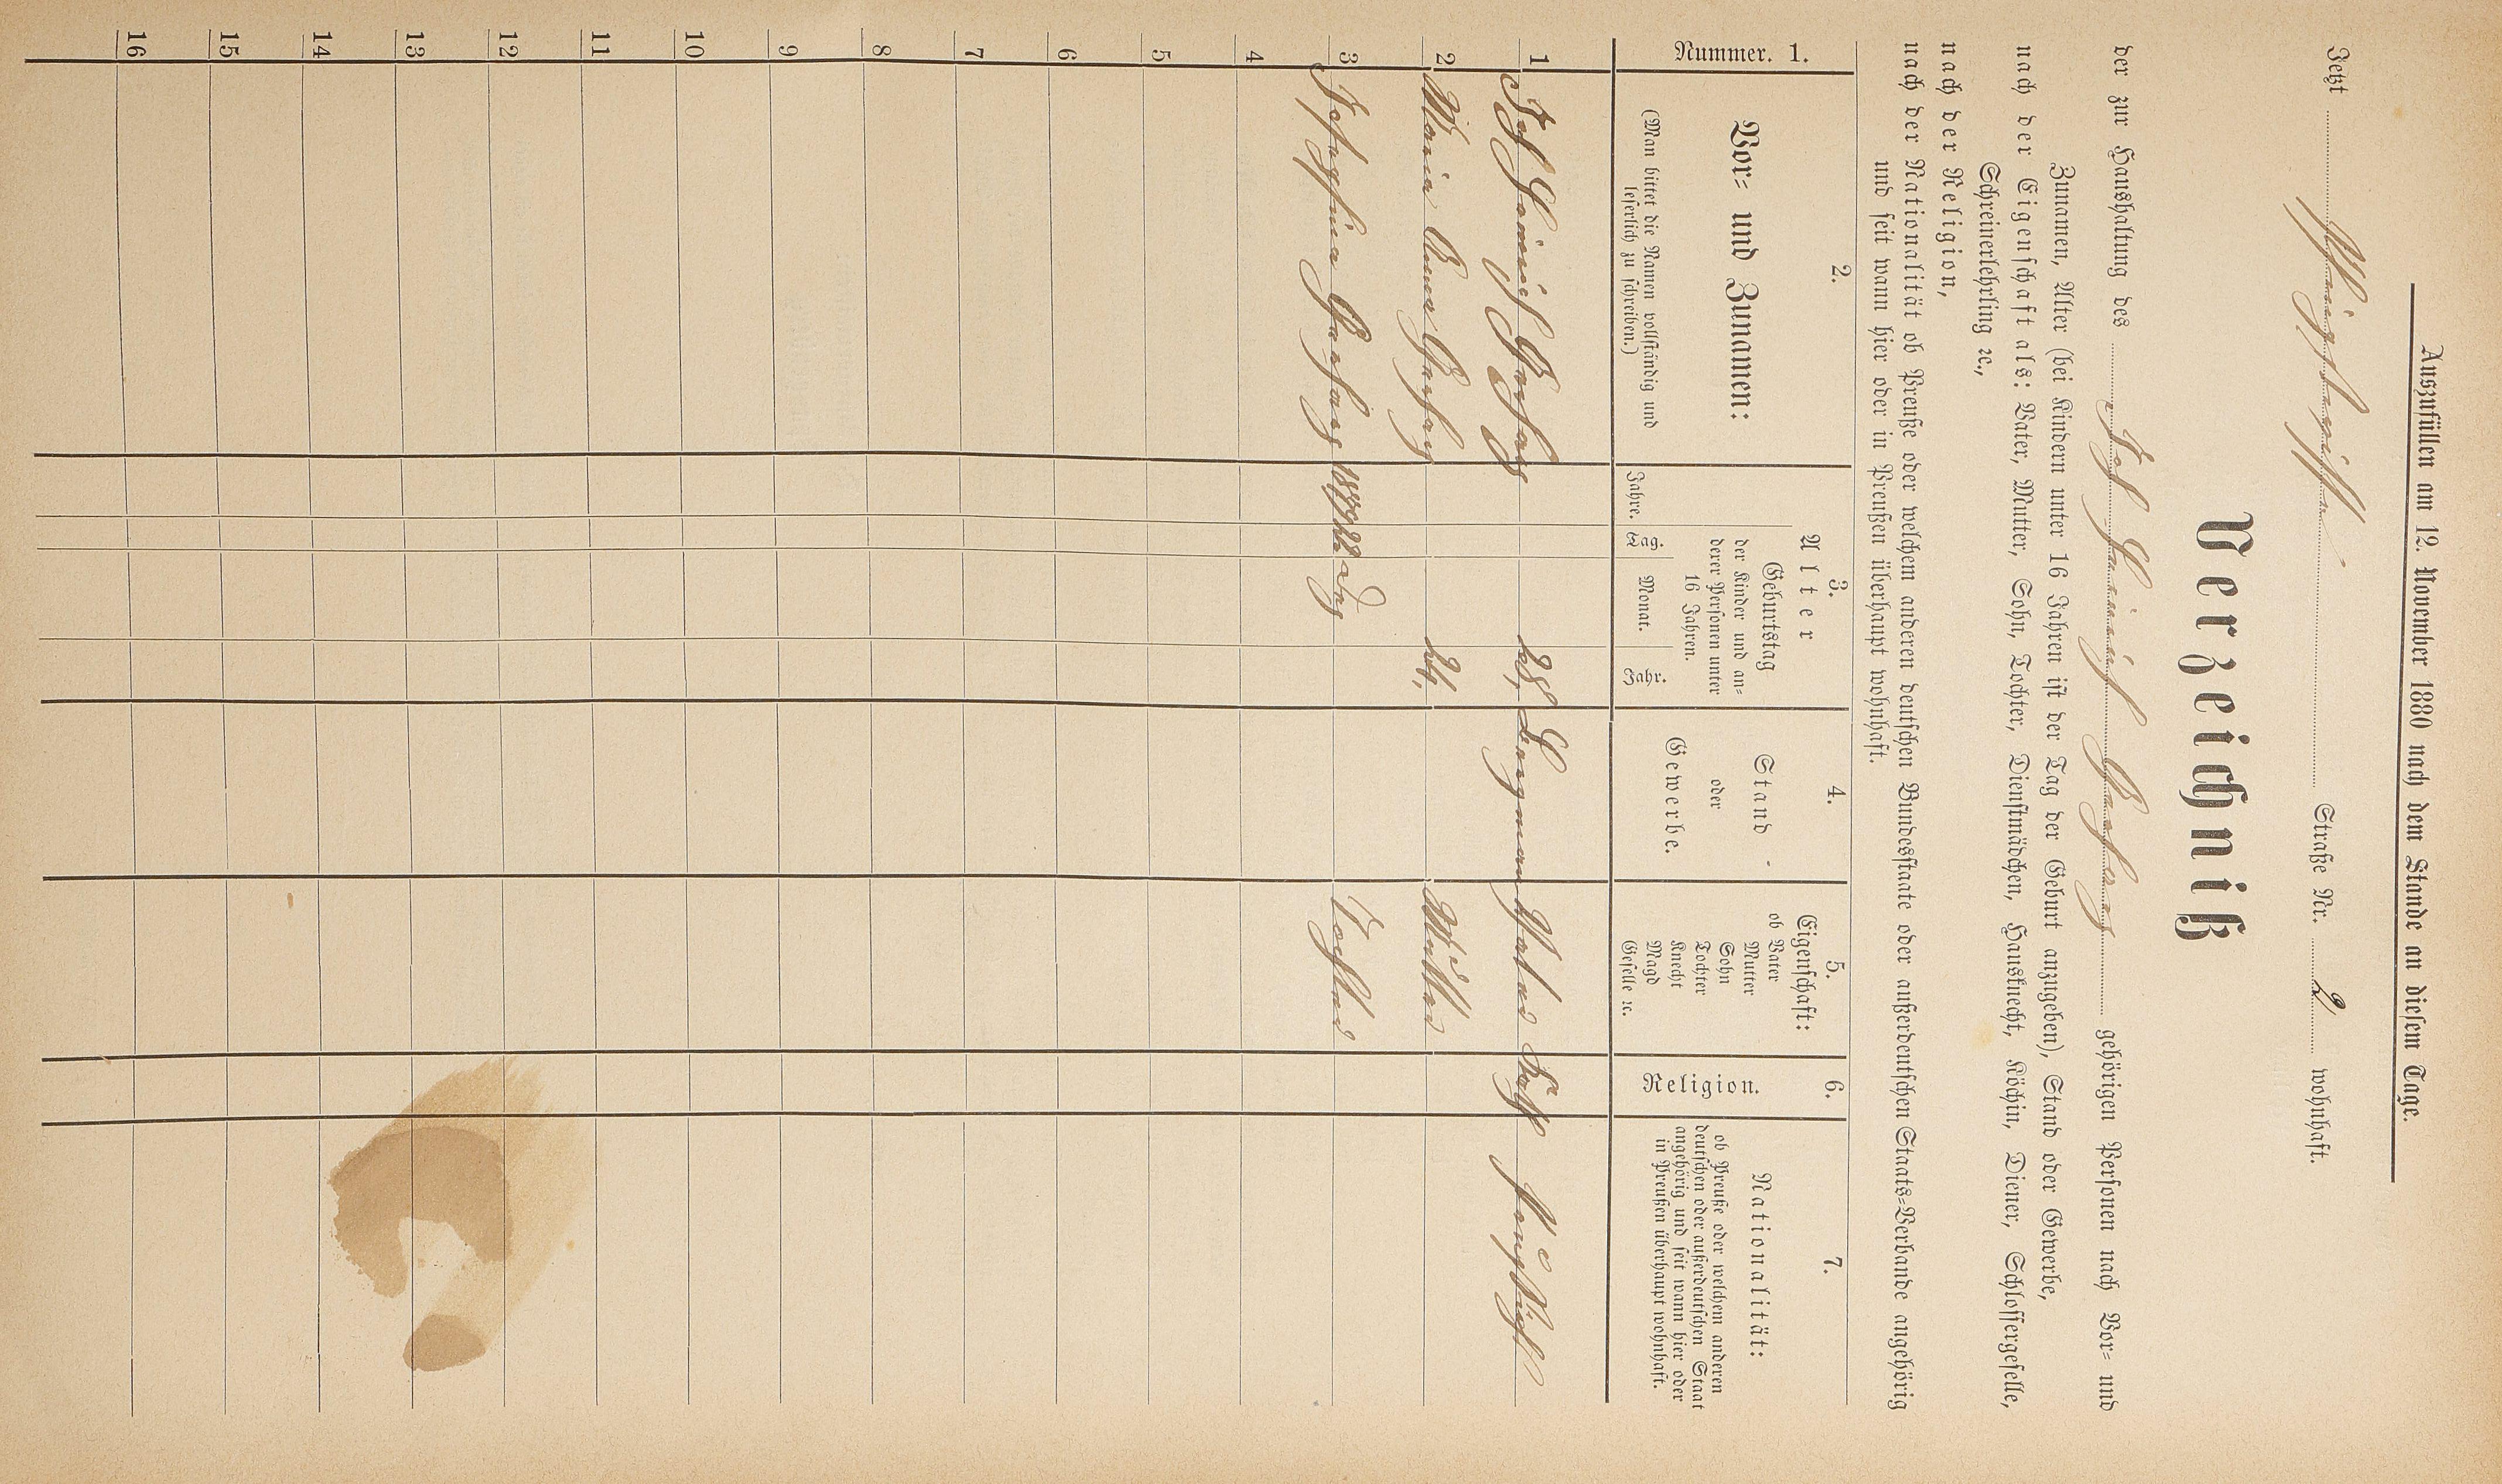 Auszufüllen am 12. November 1880 nach dem Stande an diesem Tage.
Jetzt Straße Nr. 2 wohnhaft.
Verzeichniß
der zur Haushaltung des Joh Heinrich gehörigen Personen nach Vor= und
Zunamen, Alter (bei Kindern unter 16 Jahren ist der Tag der Geburt anzugeben), Stand oder Gewerbe,
nach der Eigenschaft als: Vater, Mutter, Sohn, Tochter, Dienstmädchen, Hausknecht, Köchin, Diener, Schlossergeselle,
Schreinerlehrling ꝛc.,
nach der Religion,
nach der Nationalität ob Preuße oder welchem anderen deutschen Bundesstaate oder außerdeutschen Staats=Verbande angehörig
und seit wann hier oder in Preußen überhaupt wohnhaft.
Nummer. 1.
2.
Vor= und Zunamen:
(Man bittet die Namen vollständig und
leserlich zu schreiben.)
3.
Alter
Geburtstag
der Kinder und an=
derer Personen unter
16 Jahren.
Jahre.
Tag.
Monat.
Jahr.
4.
Stand
oder
Gewerbe.
5.
Eigenschaft:
ob Vater
Mutter
Sohn
Tochter
Knecht
Magd
Geselle ꝛc.
6.
Religion.
7.
Nationalität:
ob Preuße oder welchem anderen
deutschen oder außerdeutschen Staat
angehörig und seit wann hier oder
in Preußen überhaupt wohnhaft.
1 Joh Heinrich 28, Bergmann Vater Kath
2 Maria Anna 24, Mutter
3 Josephina Tochter
4
5
6
7
8
9
10
11
12
13
14
15
16